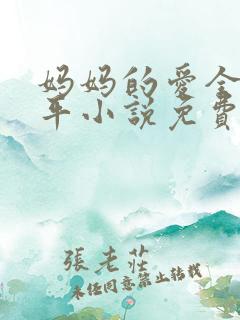 妈妈的愛全
平小說免費
張老莊
未任同意禁止轉載